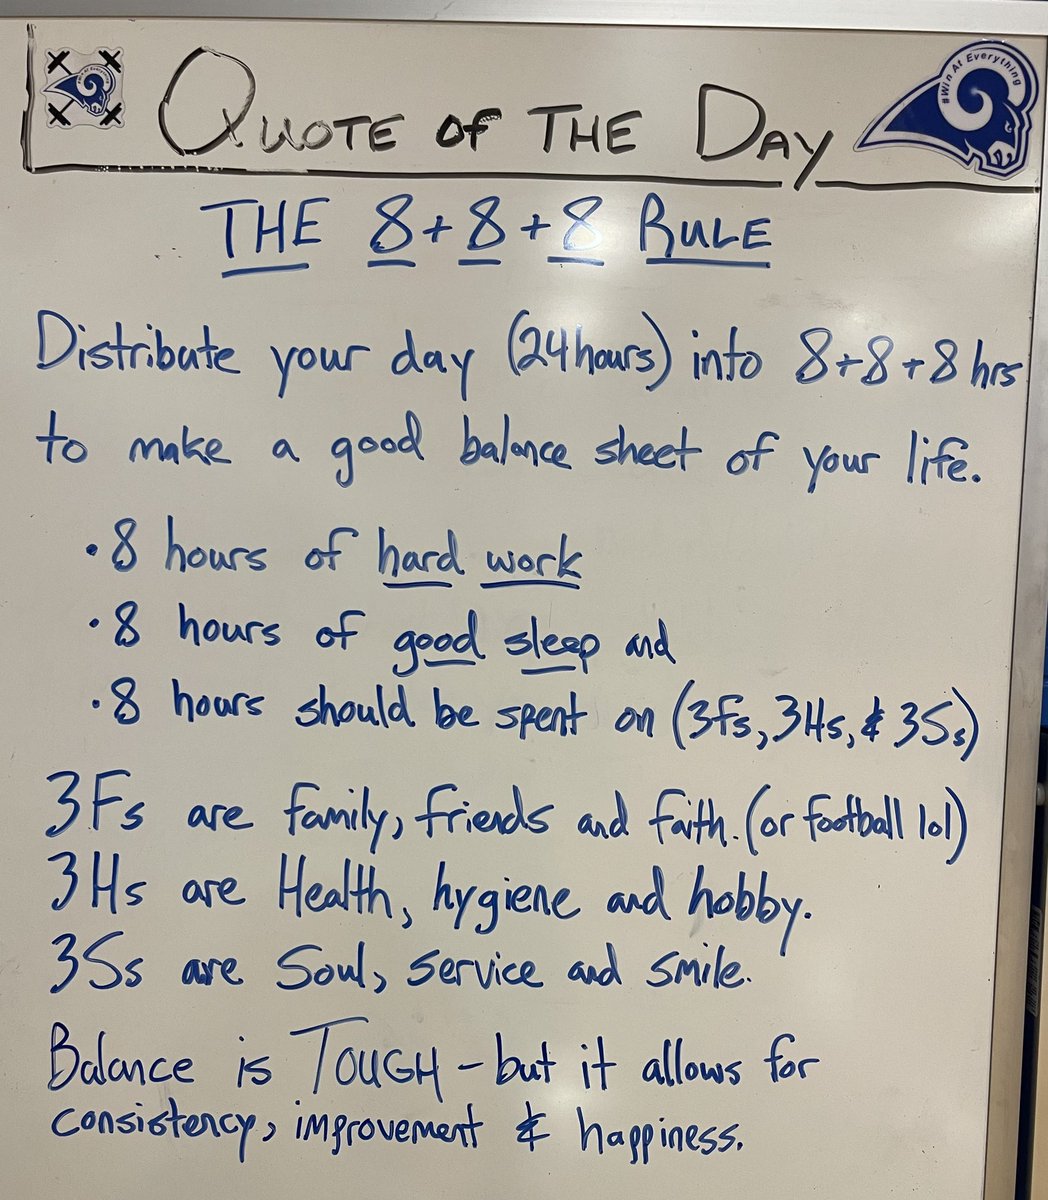 QUOTE OF THE DAY
#Win At Everything
THE 8+8+8 RULE
Distribute your day (24 hours) into 8+8+8 hrs
to make a good balance sheet of your life.
• 8 hours of hard work
• 8 hours of good sleep and
• 8 hours should be spent on (3Fs, 3Hs, & 3Ss)
3Fs are family, friends and faith. (or football lol)
3Hs are Health, hygiene and hobby.
3Ss are Soul, service and smile.
Balance is TOUGH - but it allows for
consistency, improvement & happiness.